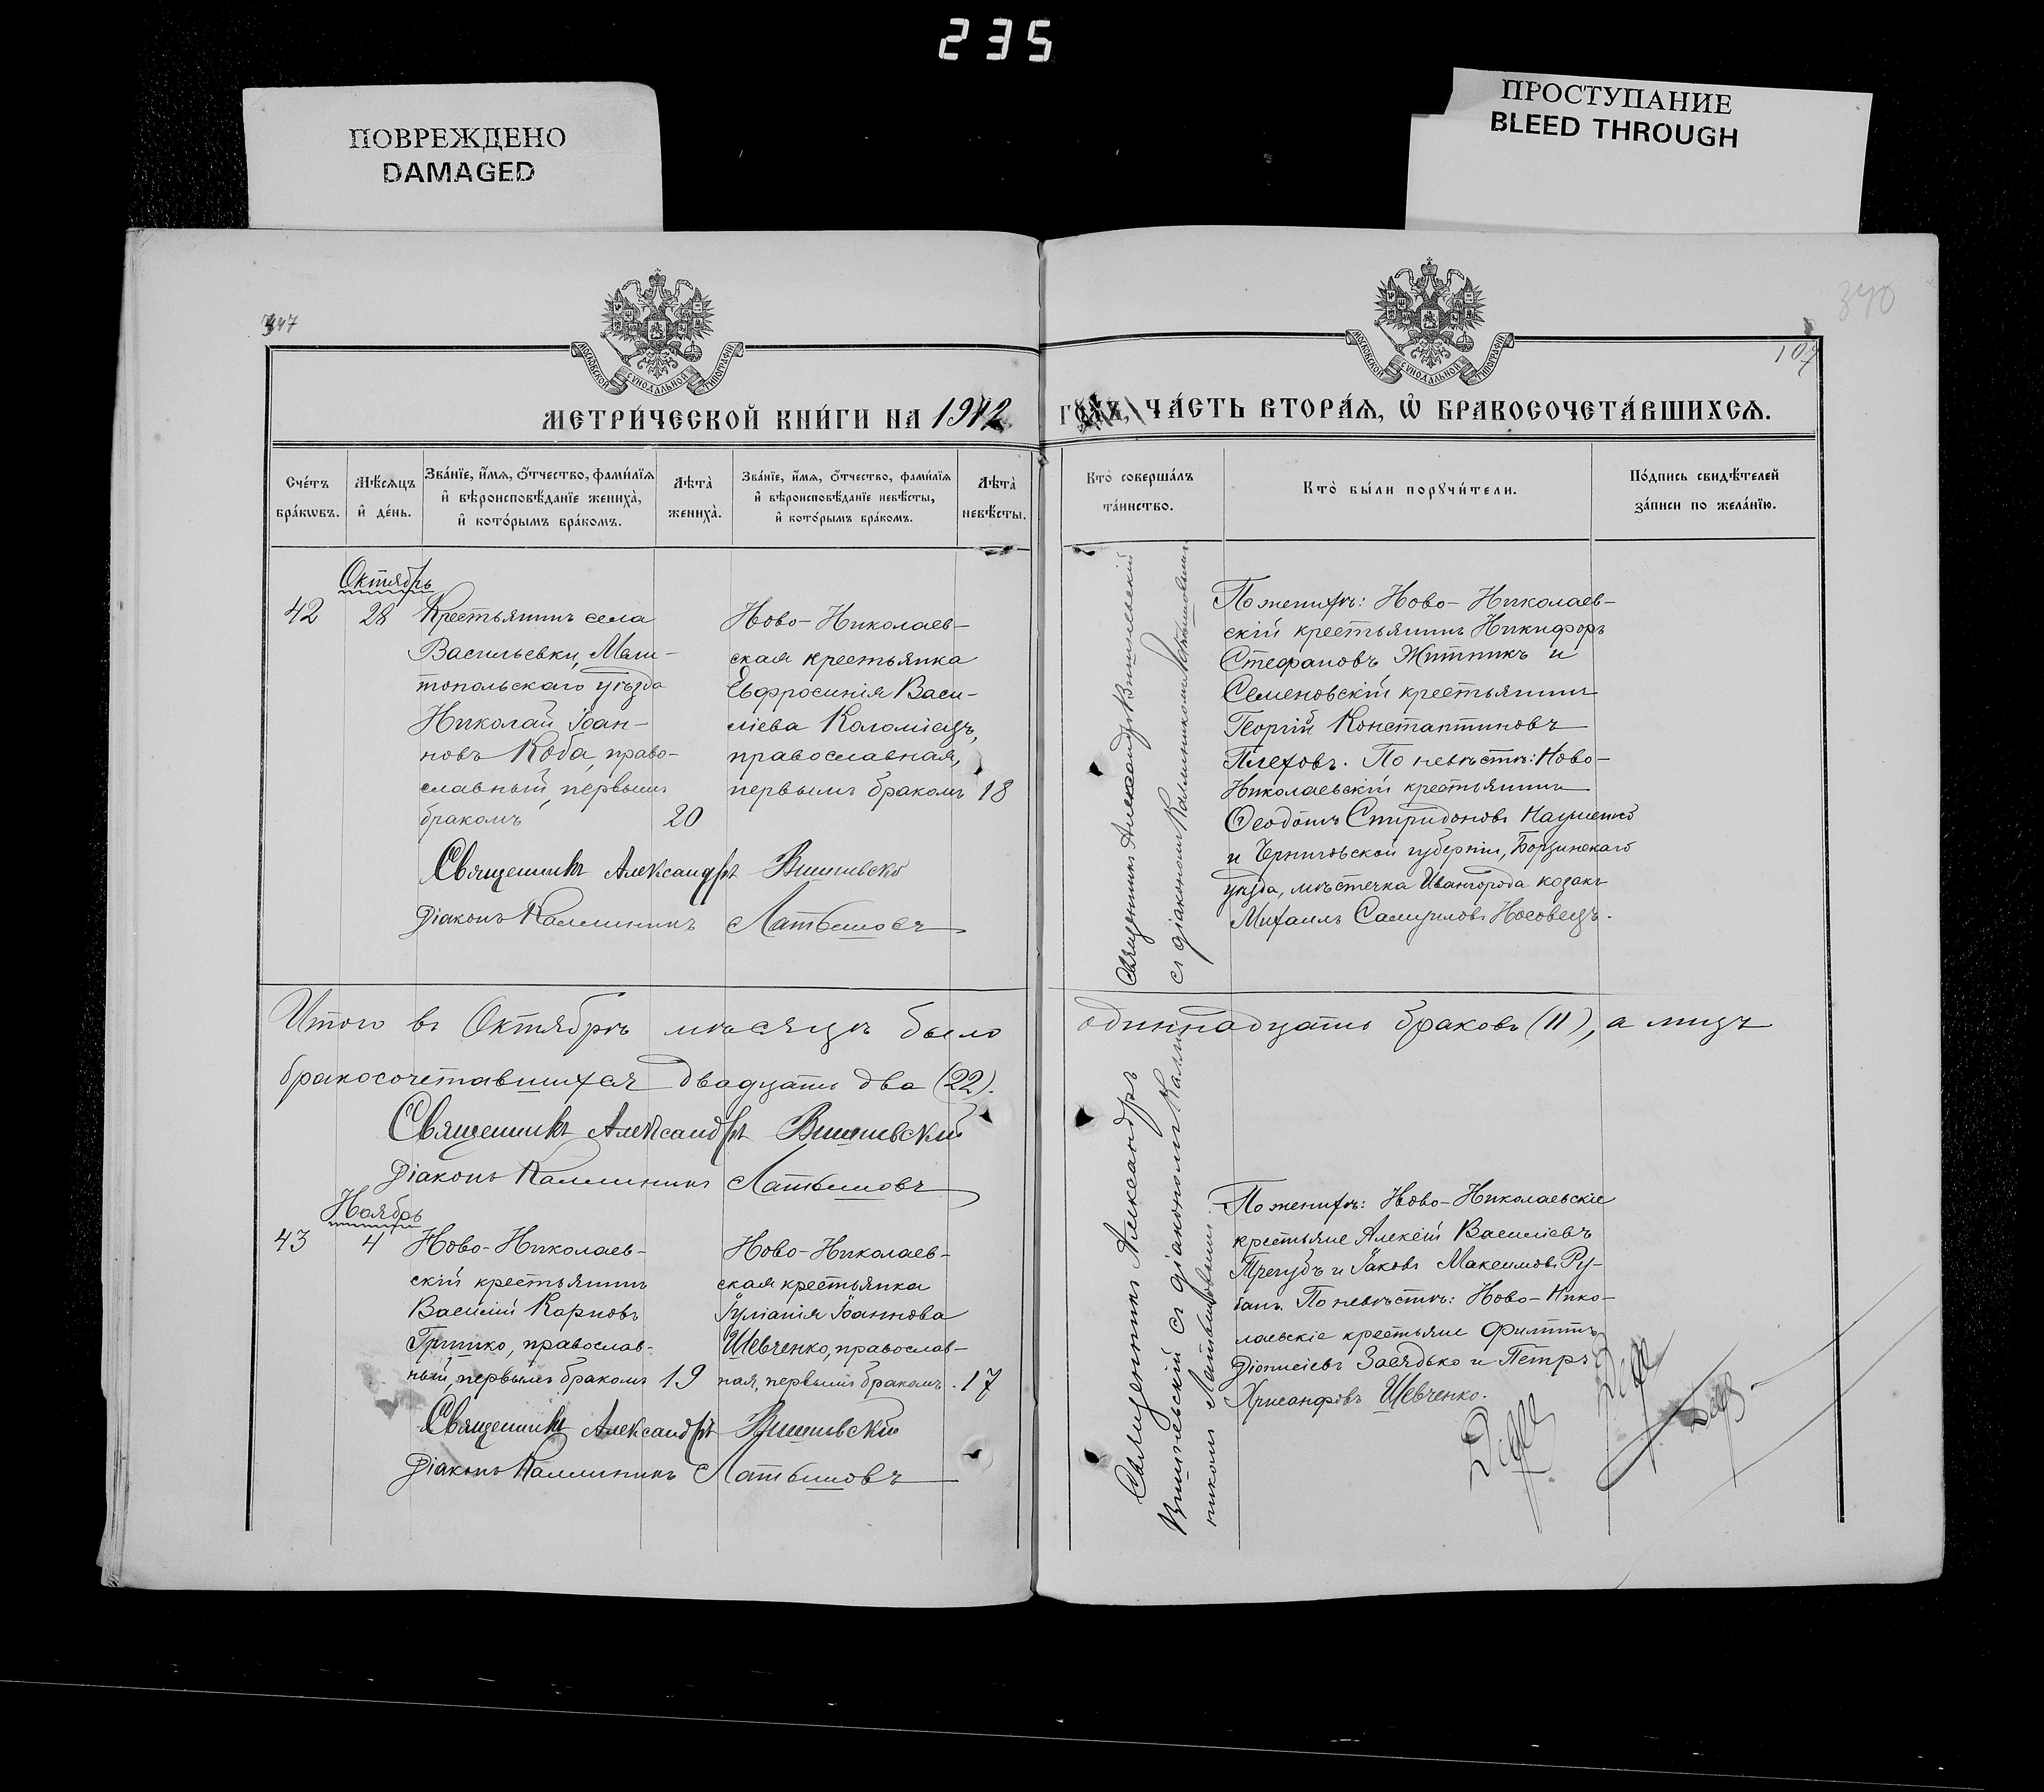 235
ПОВРЕЖДЕНО
DAMAGED
ПРОСТУПАНИЕ
BLEED THROUGH
340
107
МОСКОВСКОЙ СѴНОДАЛЬНОЙ ТИПОГРАФІИ
МОСКОВСКОЙ СѴНОДАЛЬНОЙ ТИПОГРАФІИ
МЕТРИ́ЧЕСКОЙ КНИ́ГИ НА 1912 ГО́ДЪ, ЧА́СТЬ ВТОРА́Я, Ѡ БРАКОСОЧЕТА́ВШИХСЯ.
Сче́тъ бра́кѡвъ.
Мѣ́сяцъ и҆ де́нь.
Зва́нїе, и҆́мя, ѻ҆́тчество, фами́лїя и҆ вѣроисповѣ́данїе жениха̀, и҆ кото́рымъ бра́комъ.
Лѣта̀ жениха̀.
Зва́нїе, и҆́мя, ѻ҆́тчество, фами́лїя и҆ вѣроисповѣ́данїе невѣ́сты, и҆ кото́рымъ бра́комъ.
Лѣта̀ невѣ́сты.
Кто̀ соверша́лъ та́инство.
Кто̀ бы́ли порꙋчи́тели.
По́дпись свидѣ́телей за́писи по жела́нїю.
Октябрь
42
28
Крестьянинъ села
Васильевки, Мели-
топольскаго уѣзда
Николай Іоан-
новъ Коба, право-
славный, первымъ
бракомъ
20
Ново-Николаев-
ская крестьянка
Евфросинія Васи-
ліева Коломіецъ,
православная,
первымъ бракомъ
18
Священникъ Александръ Вишневскій
съ діакономъ Каллиникомъ Латышовымъ
По женихѣ: Ново-Николаев-
скій крестьянинъ Никифоръ
Стефановъ Житникъ и
Семеновскій крестьянинъ
Георгій Константиновъ
Плеховъ. По невѣстѣ: Ново-
Николаевскій крестьянинъ
Ѳеодотъ Спиридоновъ Науменко
и Черниговской губерніи, Борзинскаго
уѣзда, мѣстечка Ивангорода козакъ
Михаилъ Самуиловъ Носовецъ.
Священникъ Александръ Вишневскій
Діаконъ Каллиникъ Латышовъ
Итого въ Октябрѣ мѣсяцѣ было одиннадцать браковъ (11), а лицъ
бракосочетавшихся двадцать два (22).
Священникъ Александръ Вишневскій
Діаконъ Каллиникъ Латышовъ
Ноябрь
43
4
Ново-Николаев-
скій крестьянинъ
Василій Карповъ
Гритко, православ-
ный, первымъ бракомъ
19
Ново-Николаев-
ская крестьянка
Іуліанія Іоаннова
Шевченко, православ-
ная, первымъ бракомъ.
17
Священникъ Александръ
Вишневскій съ діакономъ Калли-
никомъ Латышовымъ.
По женихѣ: Ново-Николаевскіе
крестьяне Алексій Василіевъ
Трегубъ и Іаковъ Максимовъ Ру-
банъ. По невѣстѣ: Ново-Нико-
лаевскіе крестьяне Филиппъ
Діонисіевъ Заедько и Петръ
Хрисанфовъ Шевченко.
Священникъ Александръ Вишневскій
Діаконъ Каллиникъ Латышовъ